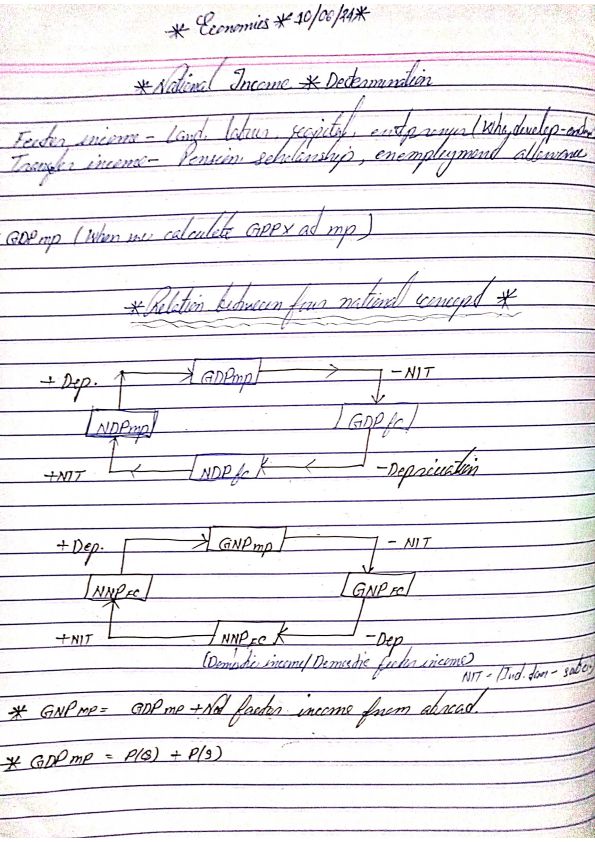 * Economics * 10/06/24*
* National Income * Determination
Factor income - Land, labour, capital, entprenyer (Who develop-
Transfer income- Pension scholarship, enemployment allowance
GDPmp (When we calculate GDPx ad mp)
*Relation between four national concept *
+ Dep. GDPmp - NIT
NDPmp GDPfc
+NIT NDPfc -Depriciation
+Dep. GNPmp - NIT
NNPFC GNPFC
+NIT NNPFC -Dep
(Domestic income/Domestic factor income)
NIT - (Ind. tax - sub
* GNPMP = GDPmp + Net factor income from abroad.
* GDPmp = P(S) + P(S)